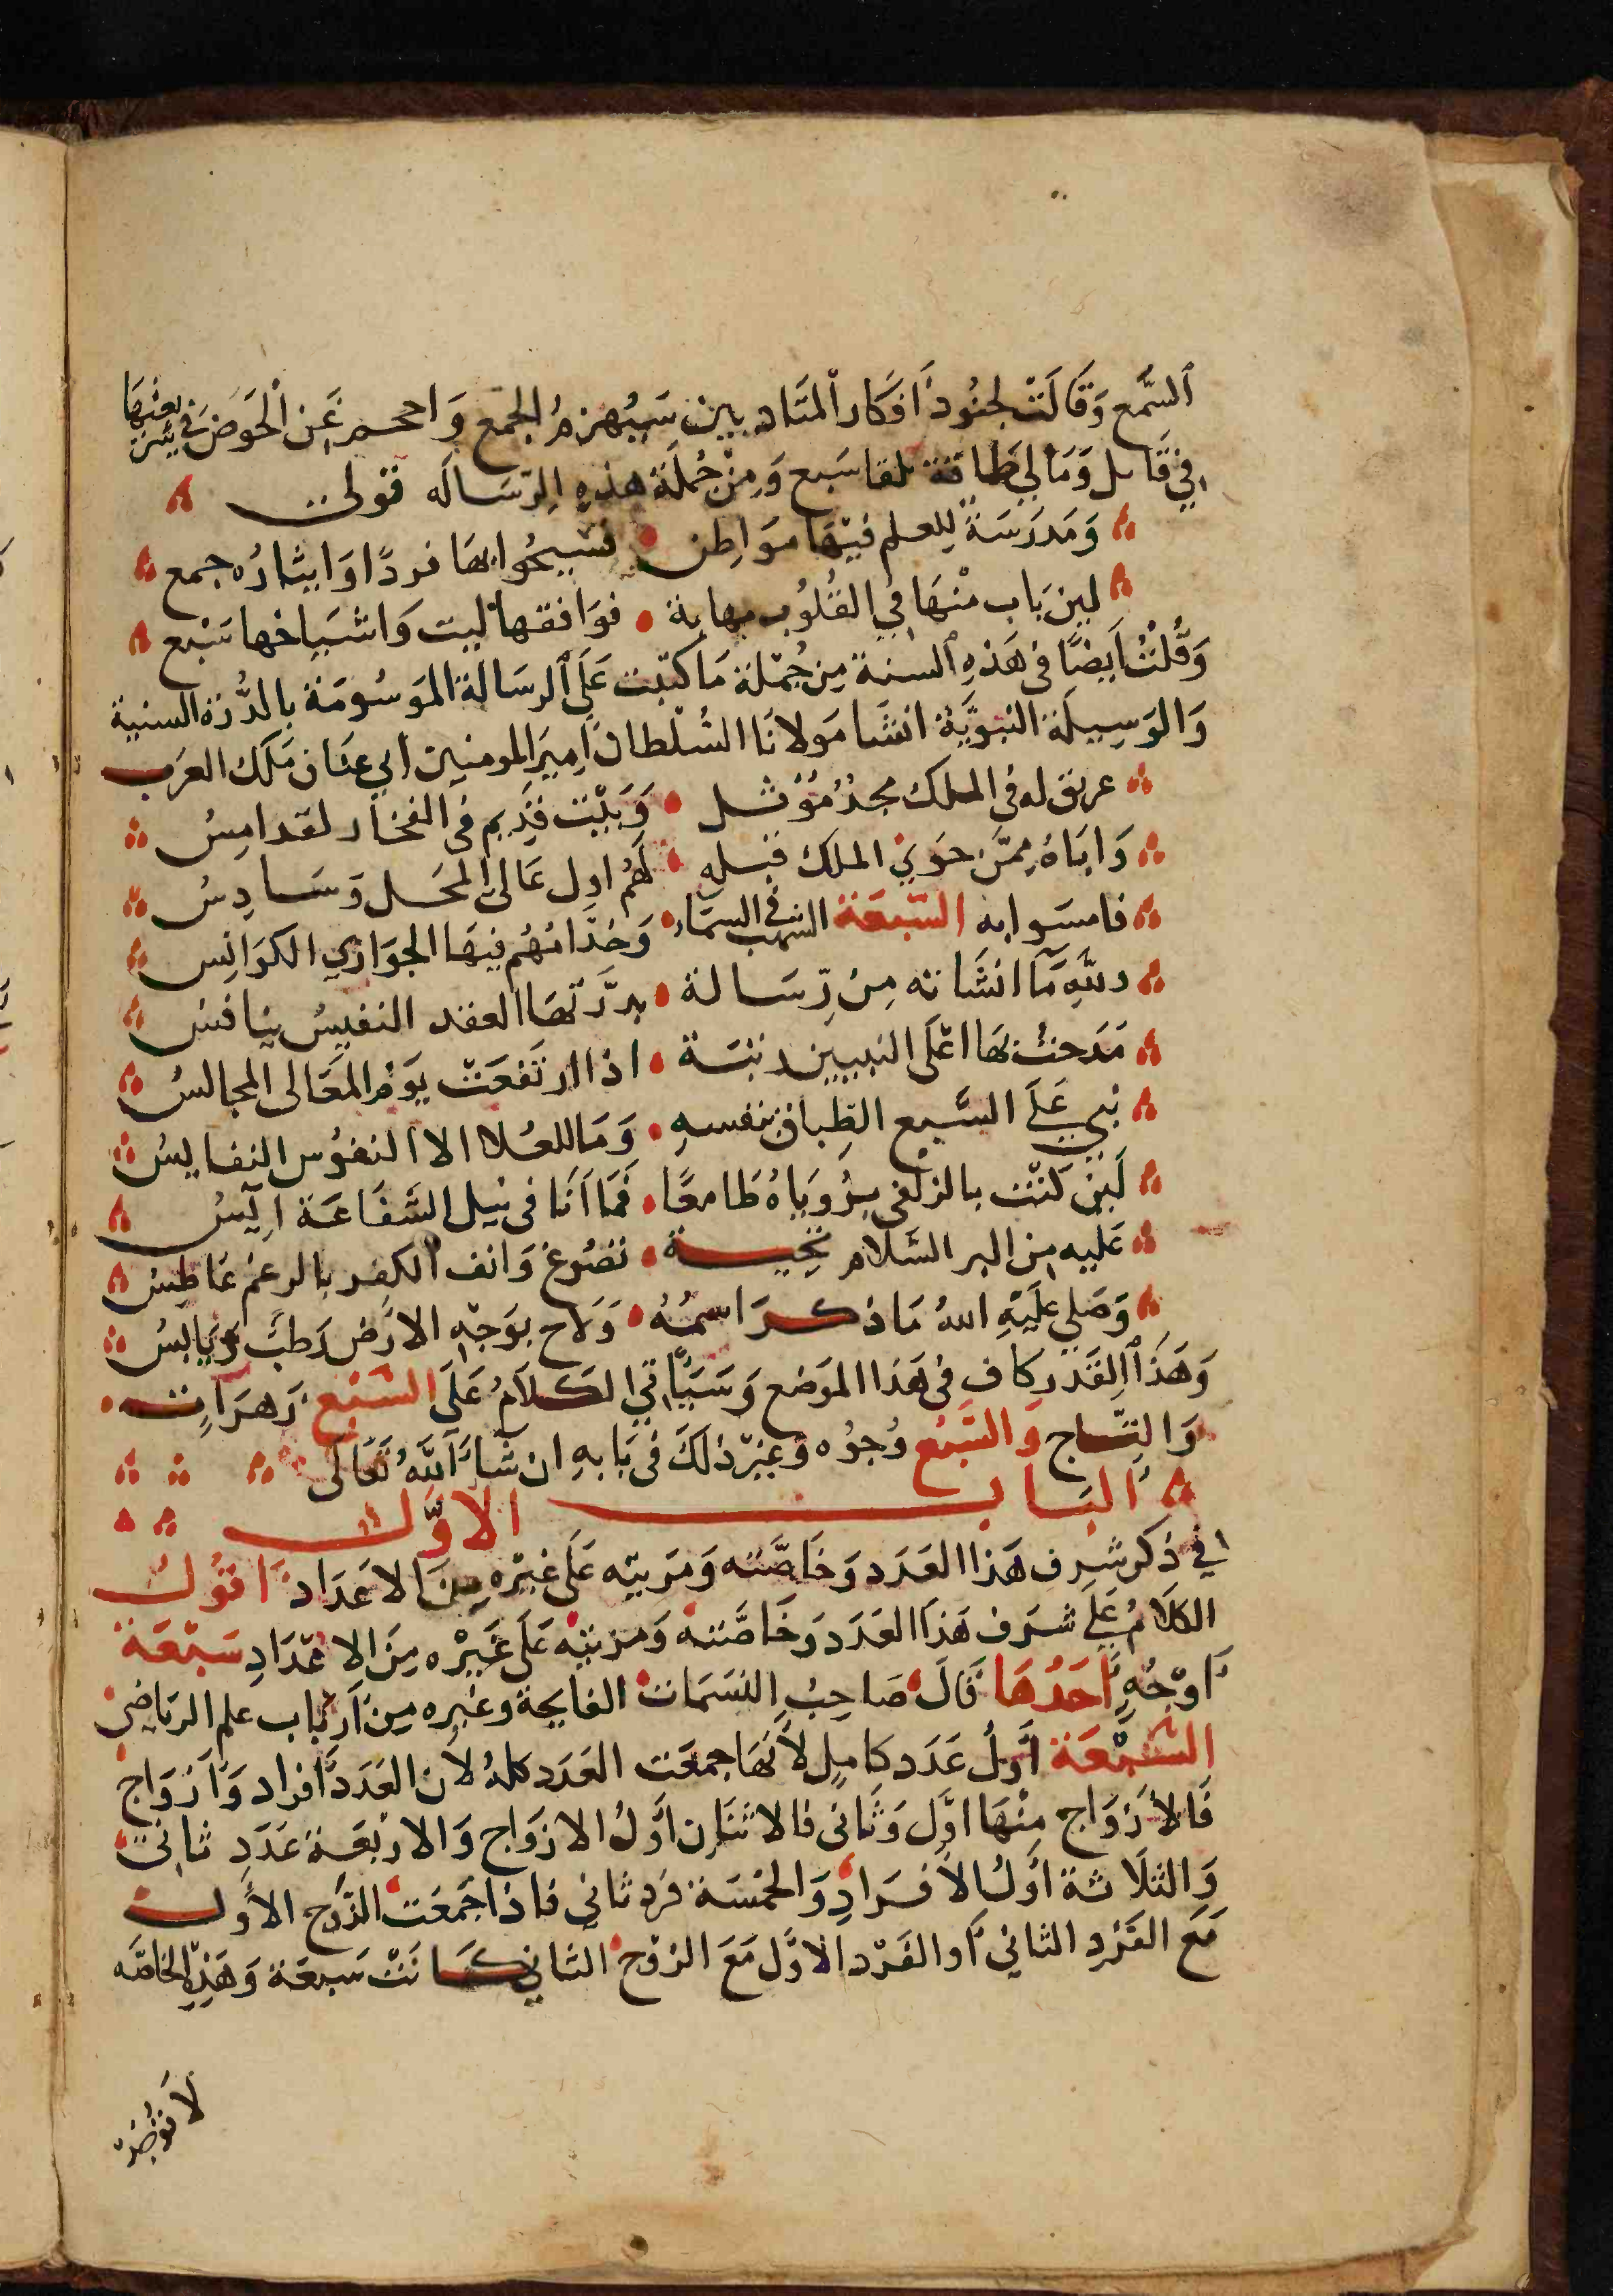 السَّمع وَقَالَتْ لجنُود أفكار المتَادبين سَيُهزمُ الجمع وَاحجم عَن الحَوضَ في بعضها
في قايل وَمَا لي طاقة تلقا سَبع وَمِنْ جُملَة هذهِ الرّسَاله قولى
وَمَدرَسَة للعلم فيْهَا مَوَاطِن • فسيحُوا بهَا فردًا وَايثارُه جمع
لين بَاب منْهَا في القلُوب مهابة • فوَافقها ليت وَاشيَاخها سَبْع
وَقُلْتُ أيضًا في هَذهِ السنة مِن جُمْلة مَا كتبْت عَلَى الرسَالة الموسُومَة بالدُّرَة السنية
وَالوَسِيلَة النبَويَّة انشَا مَولانَا السُّلْطان أمِير المومنين ابي عنَان مَلَك العرَب
عريق له في الملك مجدُ مُؤثل • وَبَيْت قديم في الفخار لقدامِسُ
وَابَاهُ ممَّن حَوَى الملك قبله • لَهُم اول عَالى المحَل وَسَادِسُ
فامسَوا به السّبْعَة الشهب في السمَاء • وَخدَّامُهُم فيهَا الجوَاري الكوَانِس
وللهِ مَا انشَاته مِن رّسَالة • بدرَّتهَا العقد النفيسُ ينافس
مَدَحت بهَا اعْلَى النبيين رتبَة • اذا ارتَفعَتْ يَومَ المعَالى المجَالسُ
نبي عَلَى السَّبع الطِباق بنفسهِ • وَمَا للعُلا الا النفوُس النفايسُ
لَين كَنْت بالزلفى برُويَاهُ طَامعًا • فمَا اَنَا في نيل الشَفَاعَة اَيسُ
عَليه من البر السَّلام تحيـــة • تضوع وَانف الكفر بالرغم عَاطِسُ
وَصَلى عَلَيْهِ اللهُ مَا ذكر اسمُهُ • وَلَاح بوَجْهِ الارَض رَطبٌ وَيَابسُ
وَهَذَا القَدر كاف في هَذا الموَضع وَسَيَأتي الكلاَمُ عَلَى السَّبْع زَهرَات
وَالتّاج وَالسَّبْع وُجوُه وَغير ذلكَ في بَابهِ ان شَاءَ اللهُ تَعَالَى
البَاب الاوَّل
في ذكر شرف هَذا العَدَد وَخَاصَّته وَمَزيته عَلى غيْره مِنَ الاعَدَاد اقوُلُ
الكلَامُ عَلَى شرَف هَذا العَدَد وَخَاصَّته وَمَزيته عَلَى غَيْره مِنَ الاعْدَادِ سَبْعَة
أوْجُهٍ أحَدُهَا قالَ صَاحِبُ النسَمَات الفايحة وغَيره مِن أرباب علم الريَاضي
السَّبْعَة أوَّلُ عَدَد كامِل لأنهَا جمعَت العَدَد كلهُ لان العَدَد أفراد وَأزوَاج
فَالأزوَاج مِنْهَا اوَّل وَثاني فالاثنَان أوَّلُ الازوَاج وَالارْبَعَة عَدَدِ ثاني
وَالثلَاثة أوَّلُ الأفرَادِ وَالخمْسَة فرد ثاني فاذا جمَعَت الزَّوج الأوَل
مَع الفَرْد الثاني أو الفَرْد الاوَّل مَعَ الزوْج الثاني كَانَتْ سَبعَة وَهَذِهِ الخاصَّه
لَا توُجد